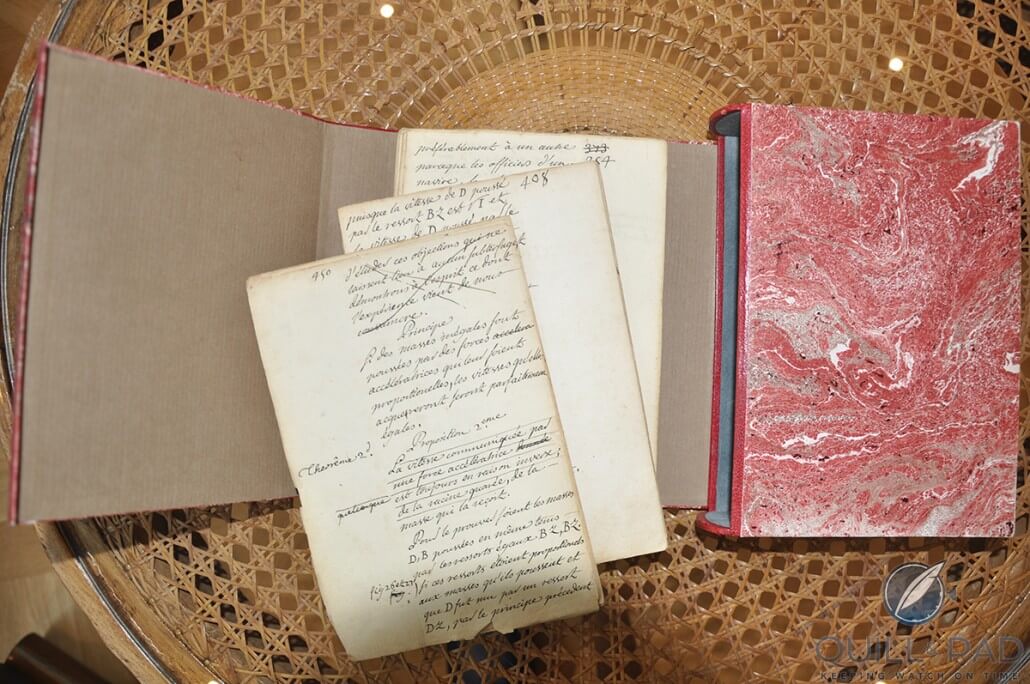 préférablement à un autre 393
parceque les officiers d'un 254
navire
puisque la vitesse de D poussé 408
par le ressort BZ est √I et
la vitesse de D poussé par le
450
d'éluder ces objections qui ne
laissent lieu à aucun subterfuge et
démontrons à l'esprit ce dont
l'expérience vient de nous
convaincre.
Principe
Si des masses inégales sont
poussées par des forces accelera
accélératrices qui leur soient
proportionelles, les vitesses qu'elles
acquereront seront parfaitement
égales.
Theorême 2d. Proposition 2eme
La vitesse communiquée par
une force accélératrice
quelconque est toujours en raison inverse;
de la racine quarée, de la
masse qui la reçoit.
Pour le prouver soient les masses
D, B poussées en même tems
par les ressorts égaux BZ, BZ
si ces ressorts étoient proportionels
aux masses qu'ils poussent et
que D fut mu par un ressort
DZ, par le principe précédent
QUILL & PAD
KEEPING WATCH ON TIME